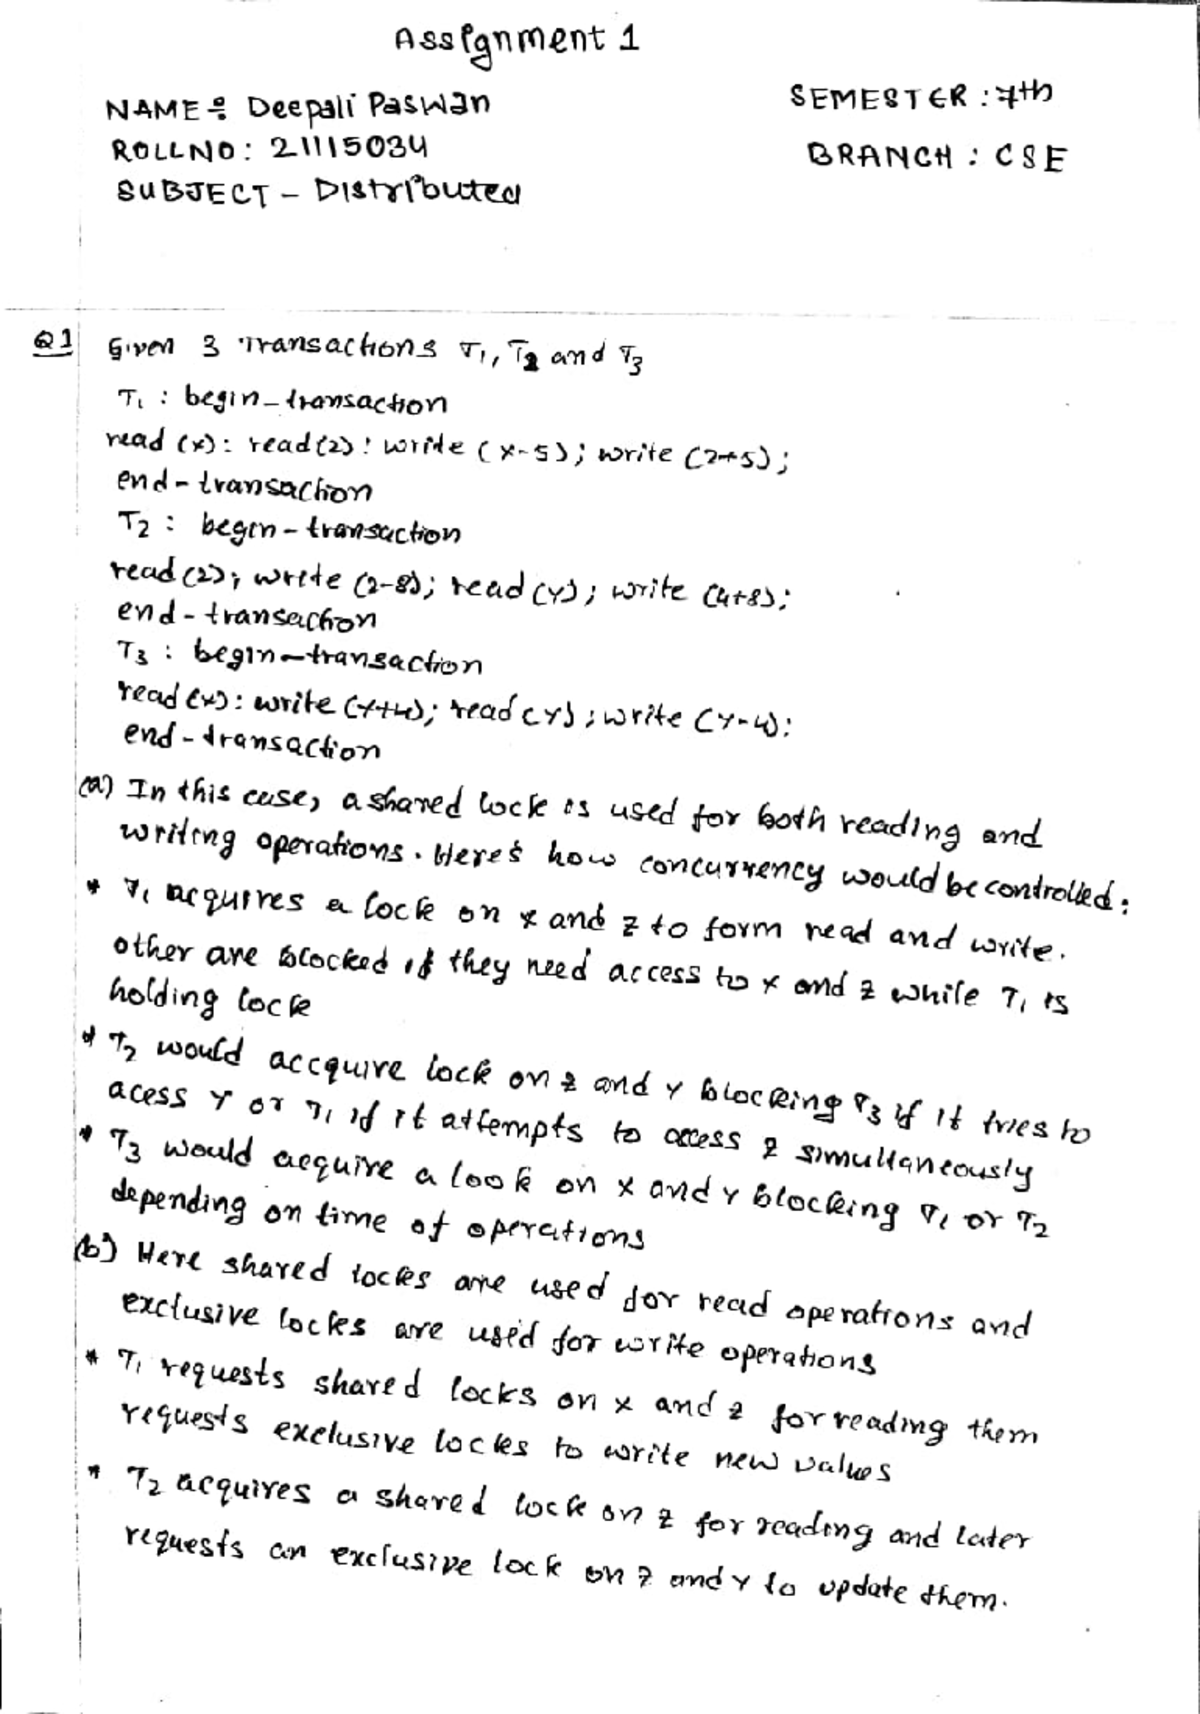 Assignment 1
NAME: Deepali Paswan
SEMESTER : 7th
ROLLNO: 21115034
BRANCH : CSE
SUBJECT - Distributed
Q1 Given 3 Transactions T1, T2 and T3
T1 : begin-transaction
read (x): read(z): write (x-5); write (z+5);
end-transaction
T2 : begin-transaction
read(z); write (z-8); read(y); write (y+8);
end-transaction
T3 : begin-transaction
read(x): write (x+4); read(y); write (y-4):
end-transaction
(a) In this case, a shared lock is used for both reading and
writing operations. Here's how concurrency would be controlled:
* T1 acquires a lock on x and z to form read and write.
other are blocked if they need access to x and z while T1 is
holding lock
* T2 would accquire lock on z and y blocking T3 if it tries to
acess y or T1 if it attempts to access z simultaneously
* T3 would acquire a look on x and y blocking T1 or T2
depending on time of operations
(b) Here shared locks are used for read operations and
exclusive locks are used for write operations
* T1 requests shared locks on x and z for reading them
requests exclusive locks to write new values
* T2 acquires a shared lock on z for reading and later
requests an exclusive lock on z and y to update them.